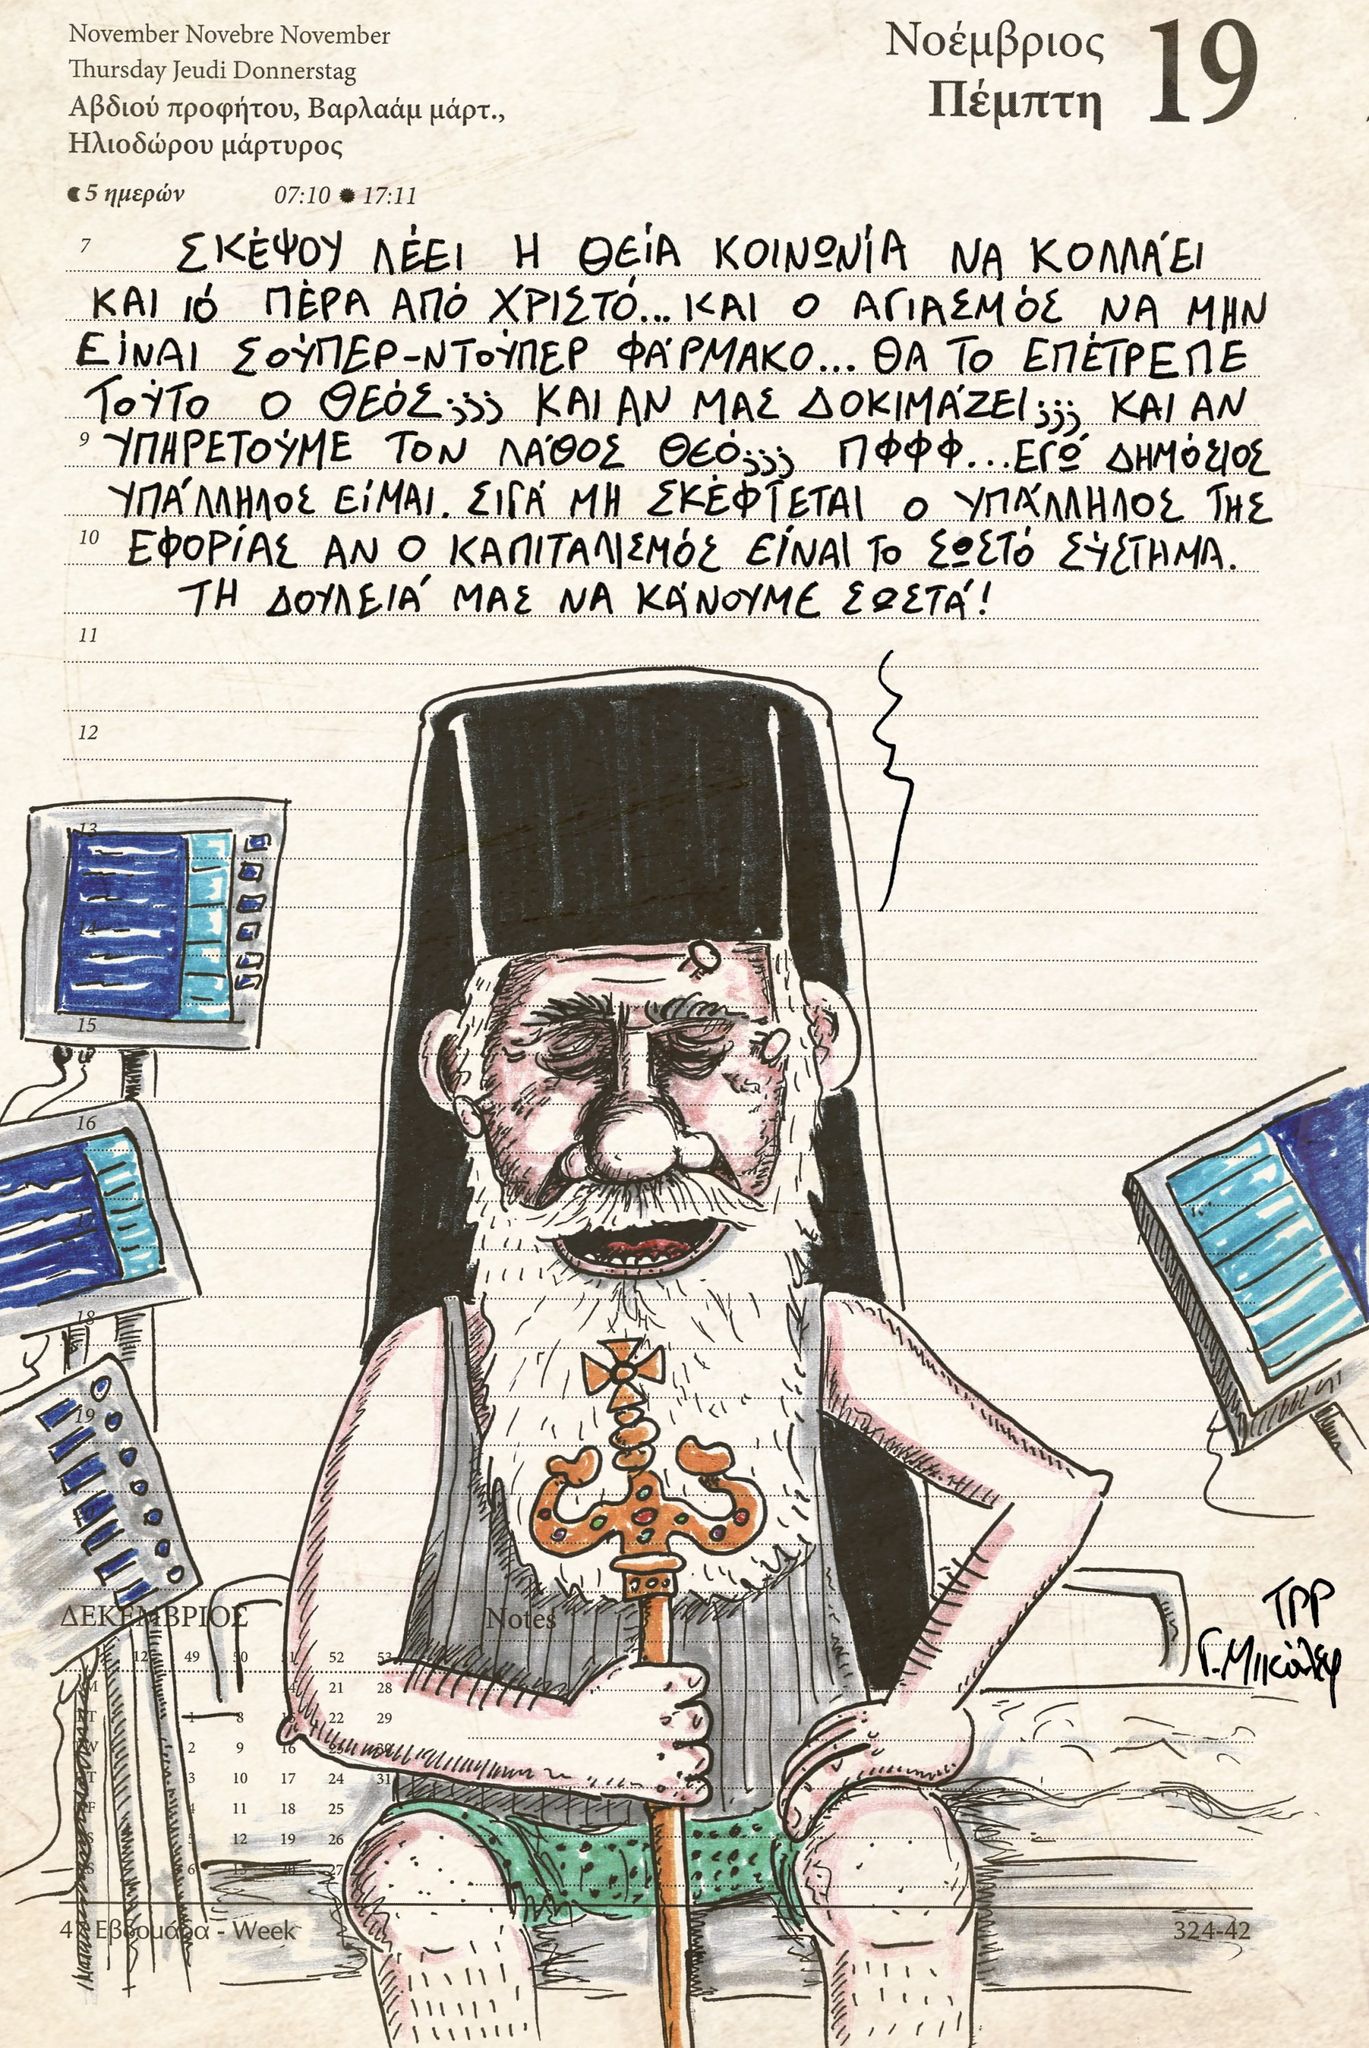 November Novebre November
Thursday Jeudi Donnerstag
Αβδιού προφήτου, Βαρλαάμ μάρτ.,
Ηλιοδώρου μάρτυρος
5 ημερών 07:10 17:11
Νοέμβριος
Πέμπτη
19
7 ΣΚΕΨΟΥ ΛΕΕΙ Η ΘΕΙΑ ΚΟΙΝΩΝΙΑ ΝΑ ΚΟΛΛΑΕΙ
ΚΑΙ ΙΌ ΠΕΡΑ ΑΠΟ ΧΡΙΣΤΟ... ΚΑΙ Ο ΑΓΙΑΣΜΟΣ ΝΑ ΜΗΝ
ΕΙΝΑΙ ΣΟΥΠΕΡ-ΝΤΟΥΠΕΡ ΦΑΡΜΑΚΟ... ΘΑ ΤΟ ΕΠΕΤΡΕΠΕ
ΤΟΥΤΟ Ο ΘΕΟΣ;;; ΚΑΙ ΑΝ ΜΑΣ ΔΟΚΙΜΑΖΕΙ;;; ΚΑΙ ΑΝ
9 ΥΠΗΡΕΤΟΥΜΕ ΤΟΝ ΛΑΘΟΣ ΘΕΟ;;; ΠΦΦΦ...ΕΓΩ ΔΗΜΟΣΙΟΣ
ΥΠΑΛΛΗΛΟΣ ΕΙΜΑΙ. ΣΙΓΑ ΜΗ ΣΚΕΦΤΕΤΑΙ Ο ΥΠΑΛΛΗΛΟΣ ΤΗΣ
10 ΕΦΟΡΙΑΣ ΑΝ Ο ΚΑΠΙΤΑΛΙΣΜΟΣ ΕΙΝΑΙ ΤΟ ΣΩΣΤΟ ΣΥΣΤΗΜΑ.
ΤΗ ΔΟΥΛΕΙΑ ΜΑΣ ΝΑ ΚΑΝΟΥΜΕ ΣΩΣΤΑ!
11
12
13
14
15
16
17
18
19
TPP
Γ. Μικάλεφ
ΔΕΚΕΜΒΡΙΟΣ Notes
12 49 50 51 52 53
M 14 21 28
T 1 8 15 22 29
W 2 9 16 23 30
T 3 10 17 24 31
F 4 11 18 25
S 5 12 19 26
S 6 13 20 27
47 Εβδομάδα - Week 324-42